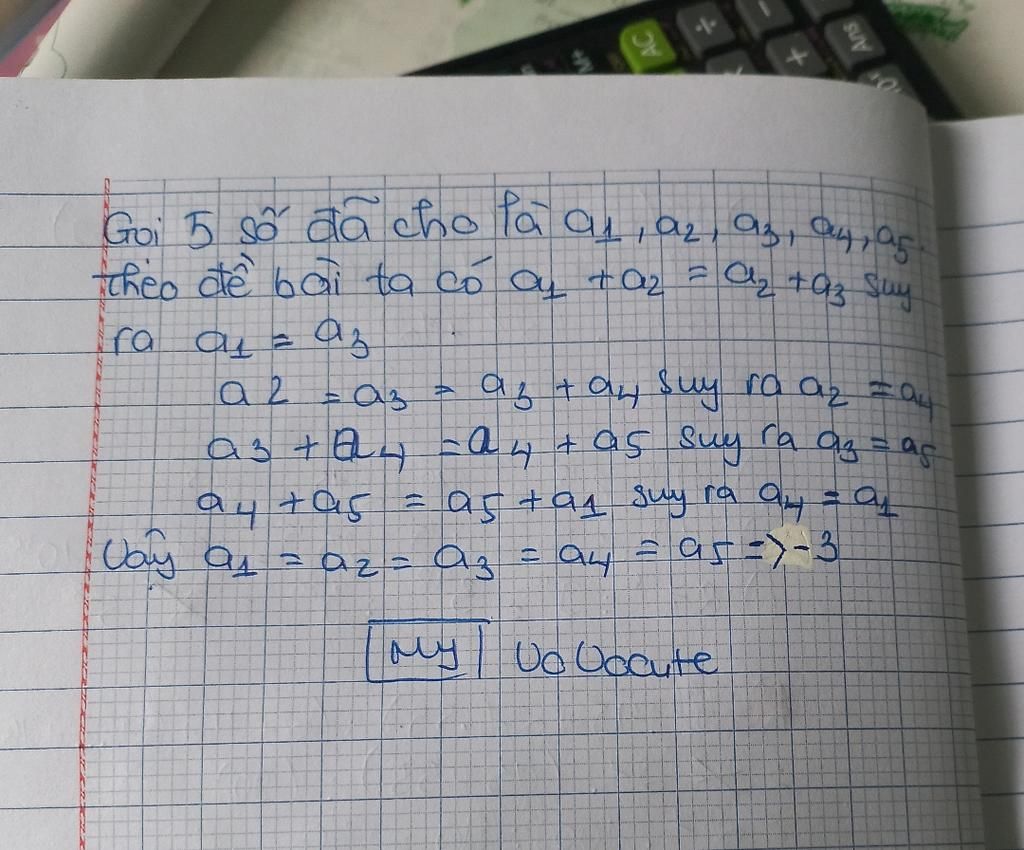 Gọi 5 số đã cho là a1, a2, a3, a4, a5.
theo đề bài ta có a1 + a2 = a2 + a3 suy
ra a1 = a3
a2 = a3 = a3 + a4 suy ra a2 = a4
a3 + a4 = a4 + a5 suy ra a3 = a5
a4 + a5 = a5 + a1 suy ra a4 = a1
Vậy a1 = a2 = a3 = a4 = a5 => -3
My Vô Vôcute
AC
÷
-
+
Ans
M+